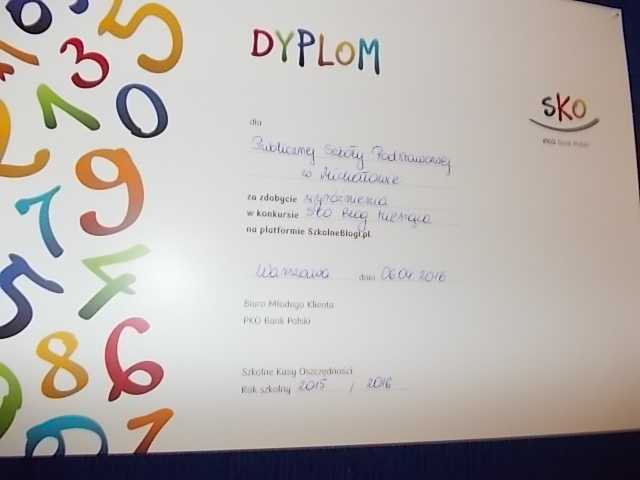 DYPLOM
SKO
PKO Bank Polski
dla
Publicznej Szkoły Podstawowej
w Michałówce
za zdobycie wyróżnienia
w konkursie SKO Blog Miesiąca
na platformie SzkolneBlogi.pl.
Warszawa dnia 06.04.2016
Biuro Młodego Klienta
PKO Bank Polski
Szkolne Kasy Oszczędności
Rok szkolny 2015 / 2016